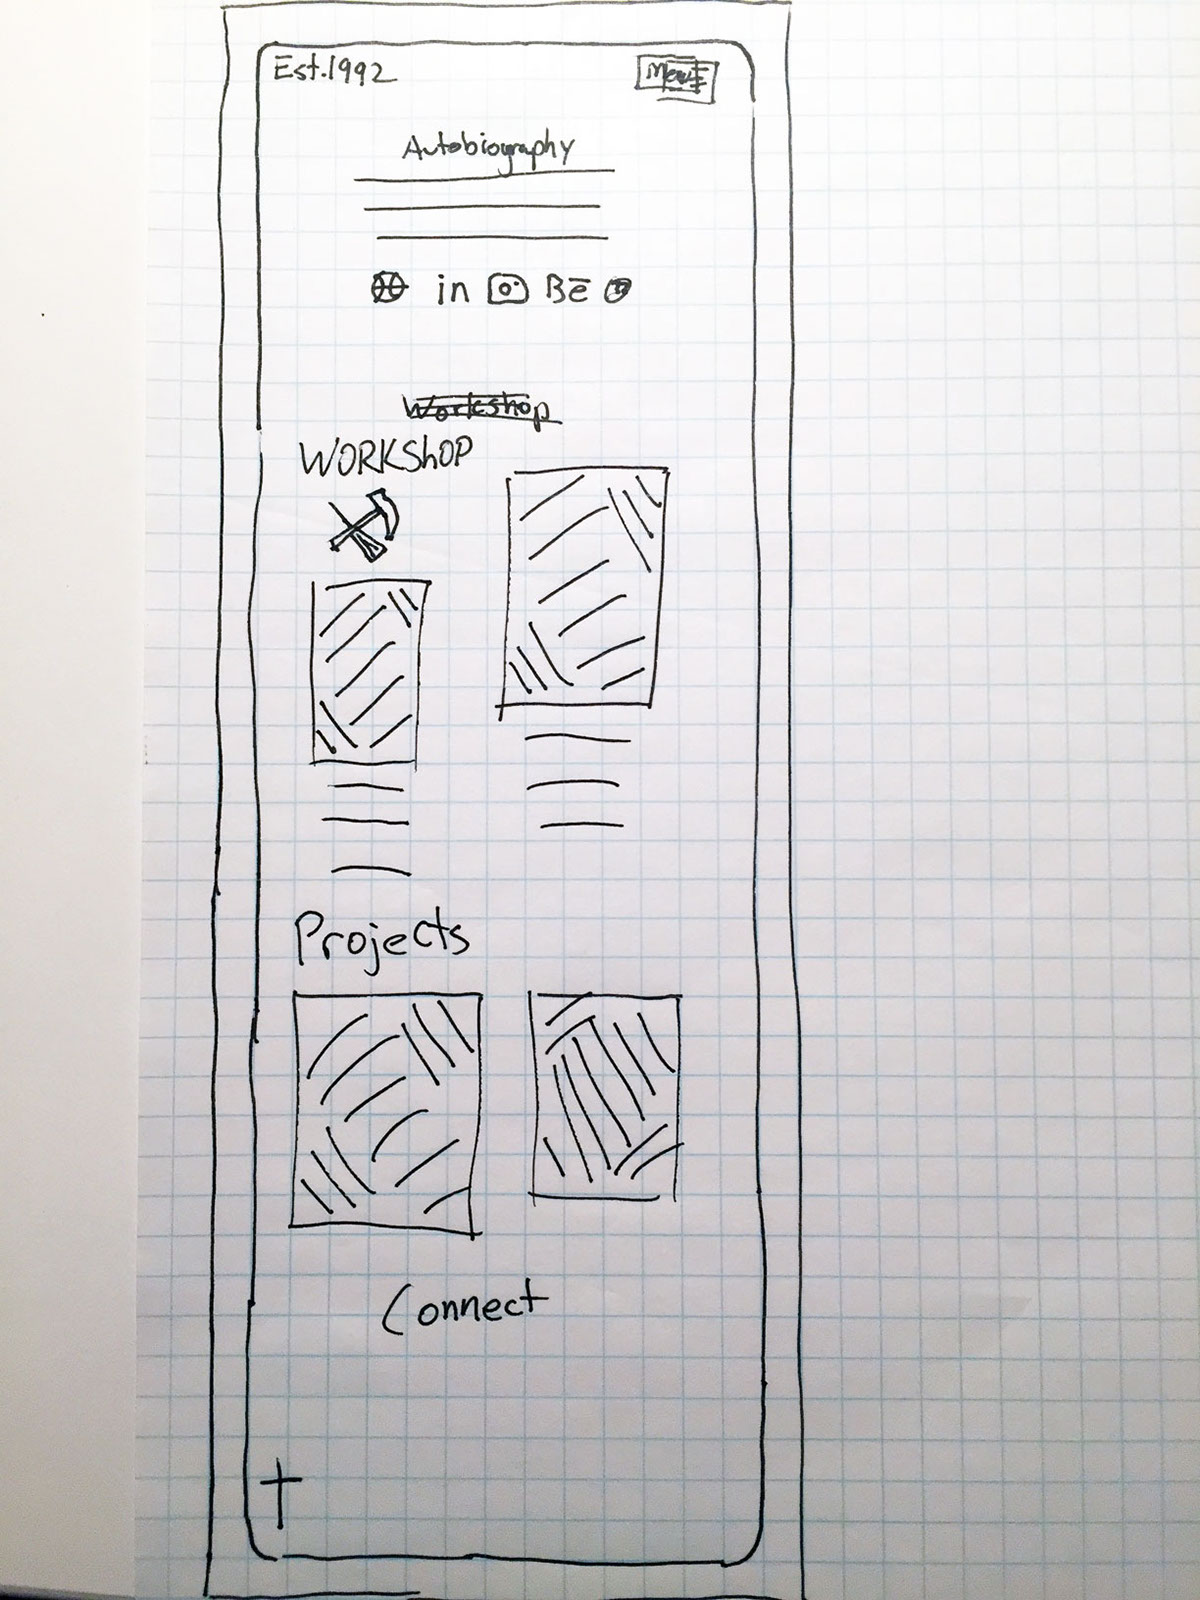 Est.1992
Menu
Autobiography
in Be
Workshop
WORKShOP
Projects
Connect